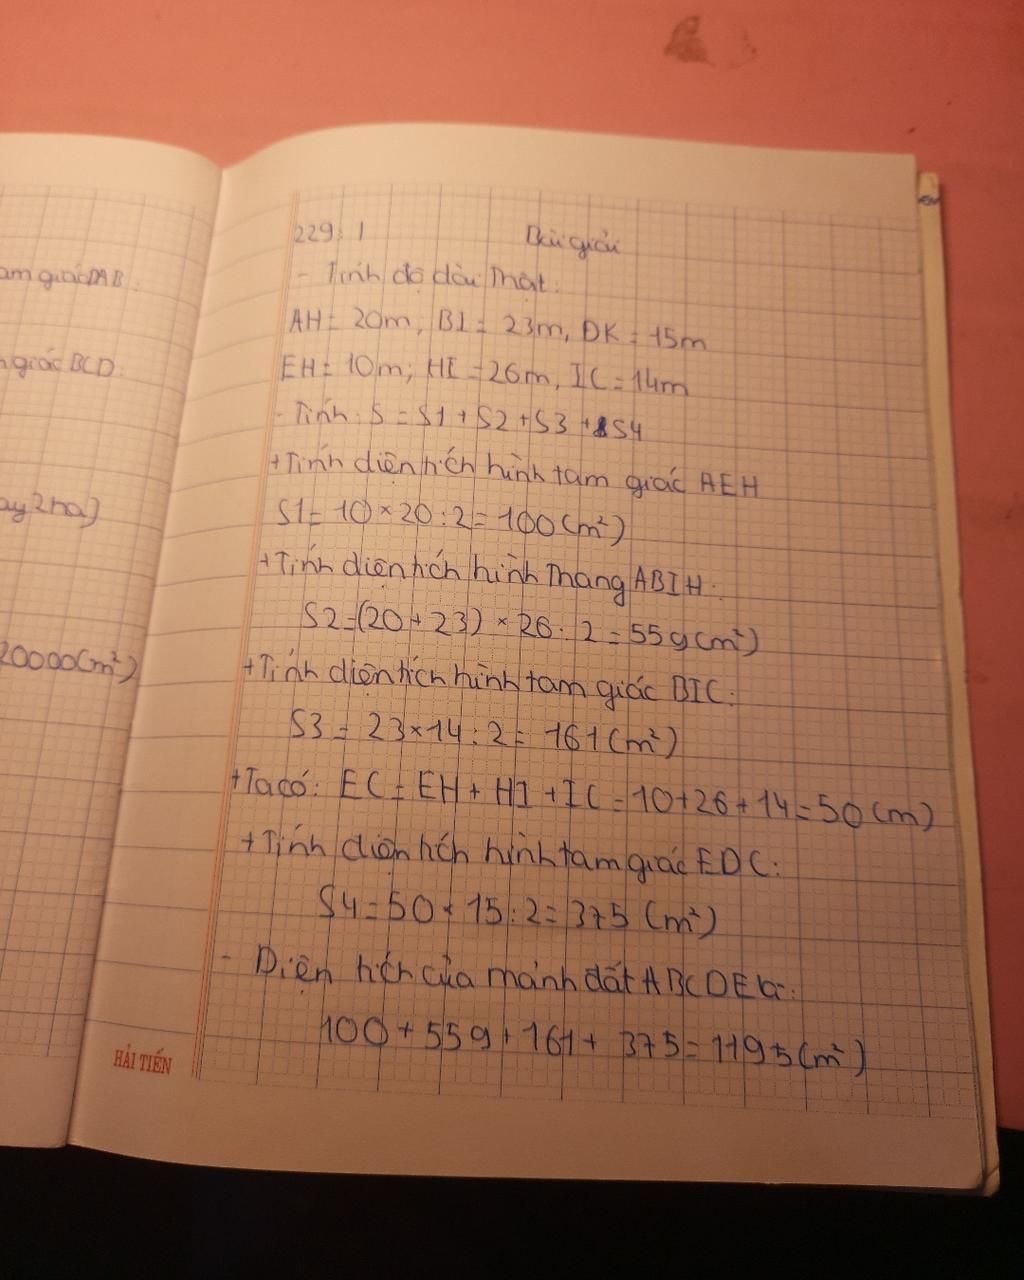 am giác DAB.
giác BCD.
ay 2ha)
20000(m²)
229: 1 Bài giải
- Tính độ dài thật:
AH = 20m; BI = 23m, DK = 15m
EH = 10m; HI = 26m, IC = 14m
- Tính: S = S1 + S2 + S3 + S4
+ Tính diện tích hình tam giác AEH
S1 = 10 × 20 : 2 = 100 (m²)
+ Tính diện tích hình thang ABIH:
S2 = (20 + 23) × 26 : 2 = 559 (m²)
+ Tính diện tích hình tam giác BIC:
S3 = 23 × 14 : 2 = 161 (m²)
+ Ta có: EC = EH + HI + IC = 10 + 26 + 14 = 50 (m)
+ Tính diện tích hình tam giác EDC:
S4 = 50 × 15 : 2 = 375 (m²)
- Diện tích của mảnh đất ABCDE là:
100 + 559 + 161 + 375 = 1195 (m²)
HẢI TIẾN